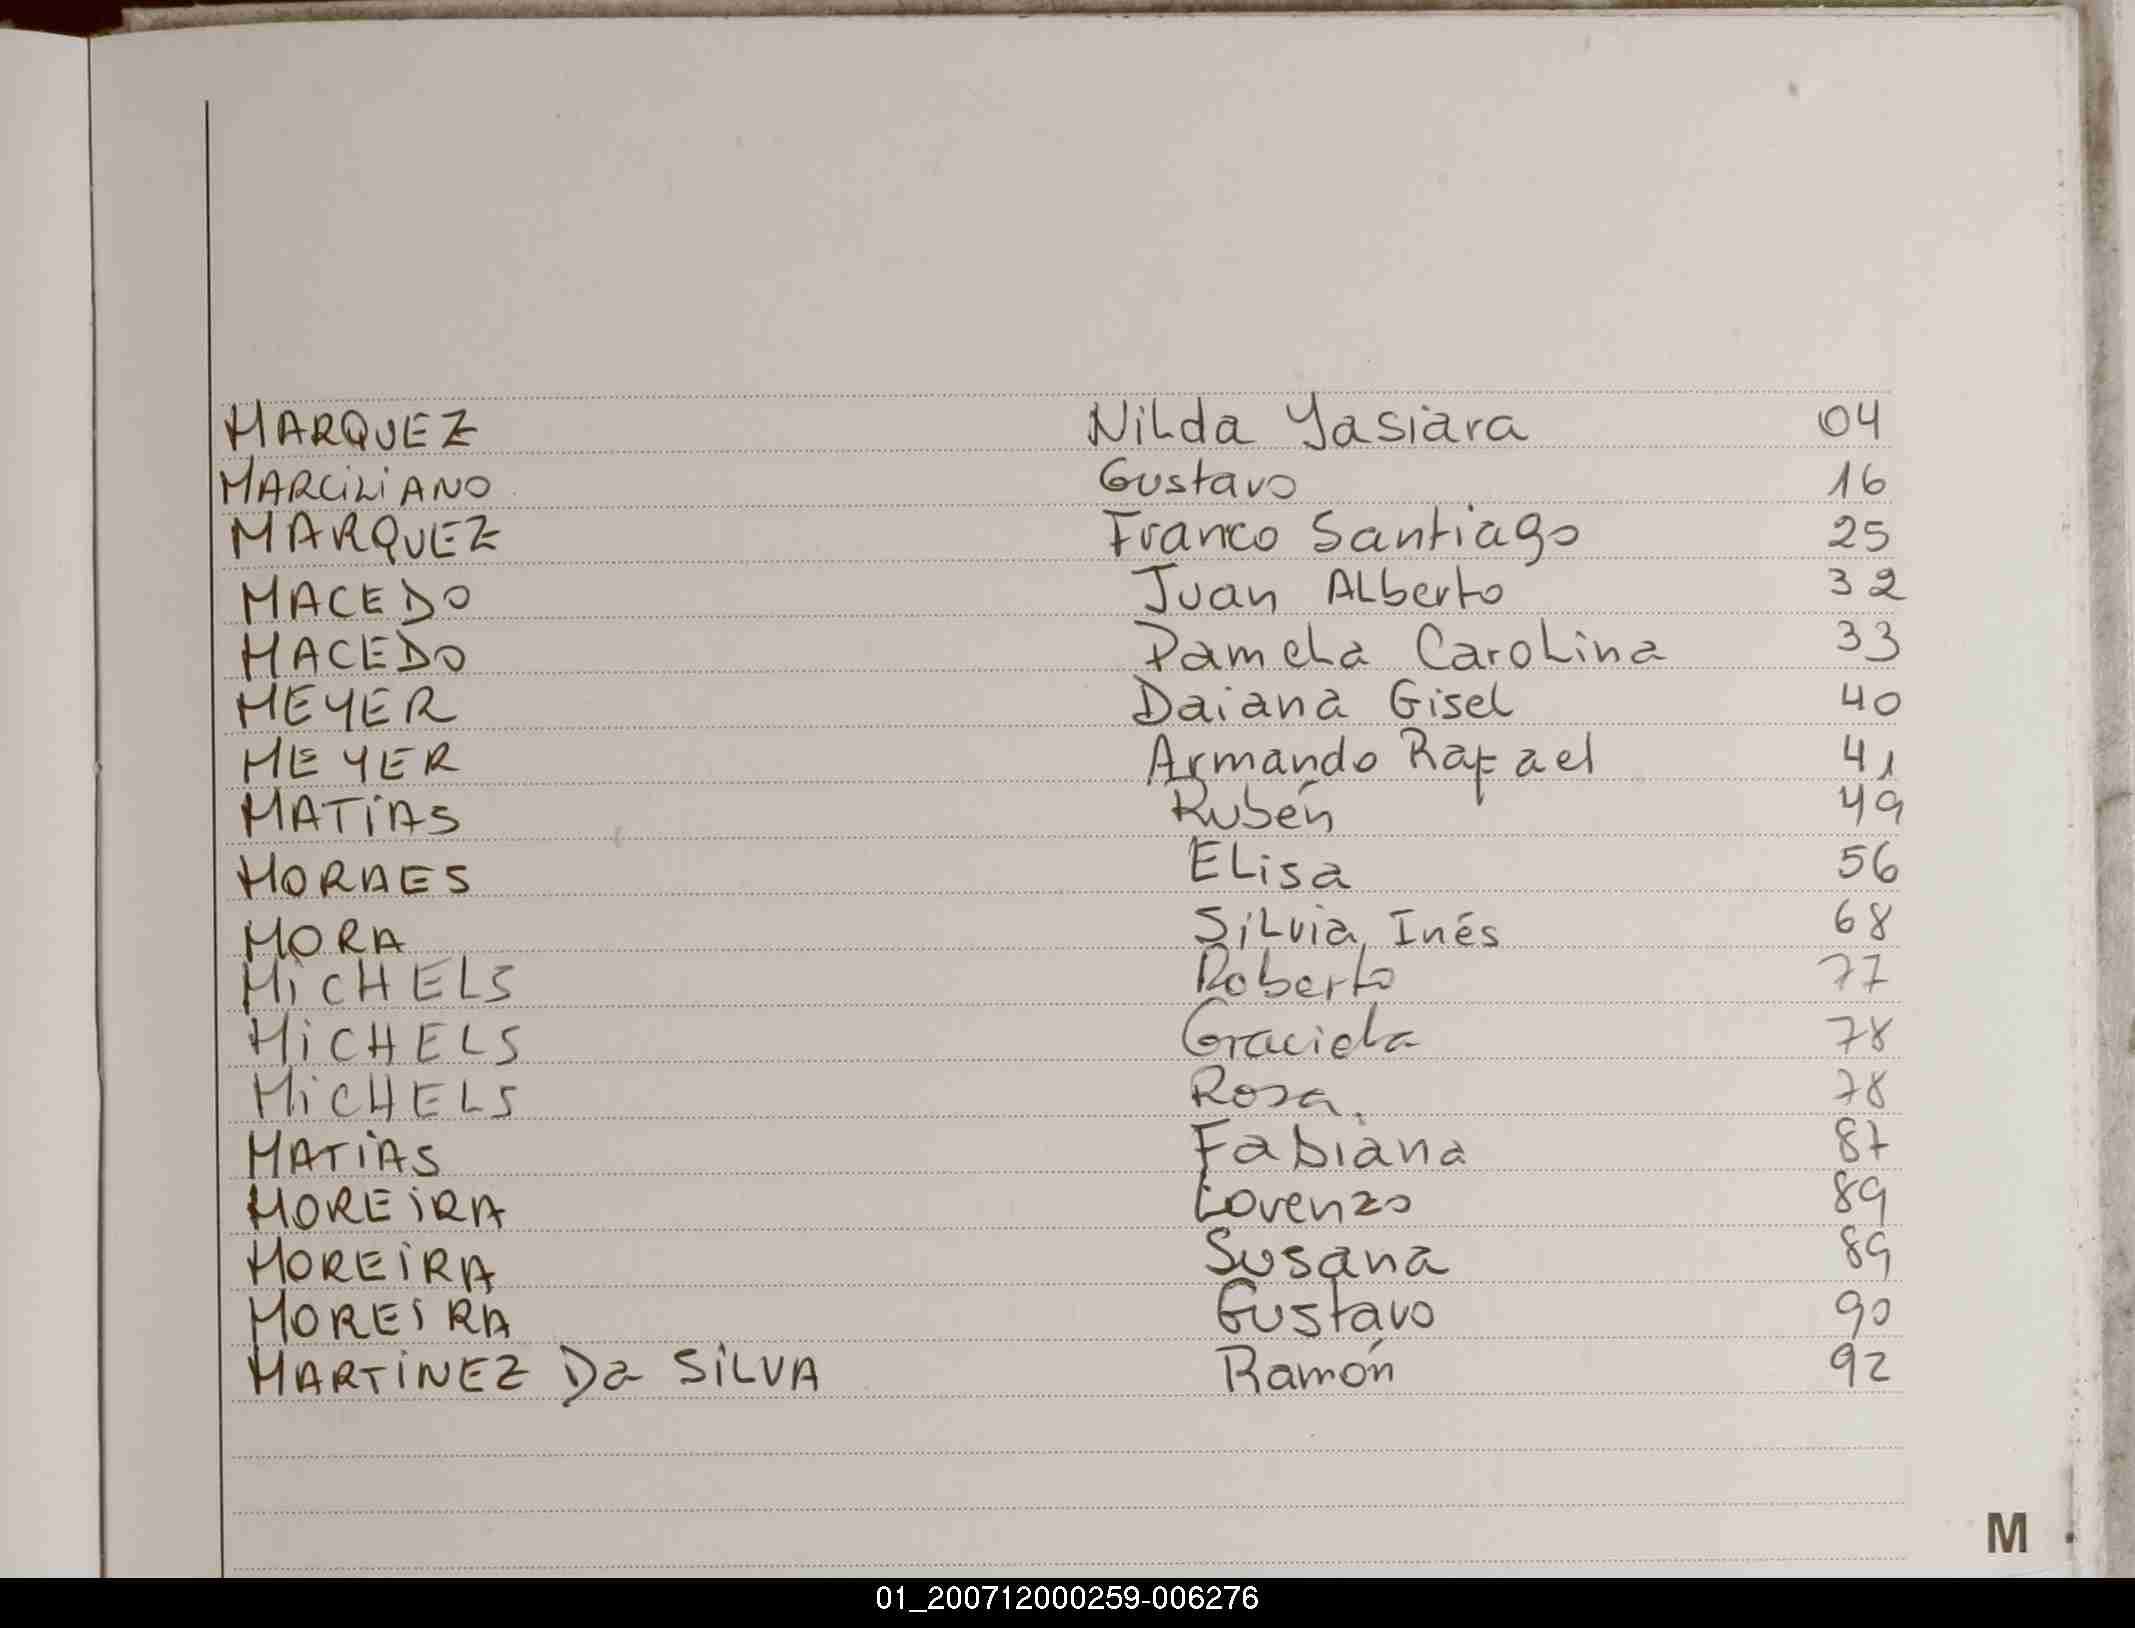 MARQUEZ Nilda Yasiara 04
MARCILIANO Gustavo 16
MARQUEZ Franco Santiago 25
MACEDO Juan Alberto 32
MACEDO Pamela Carolina 33
MEYER Daiana Gisel 40
MEYER Armando Rafael 41
MATÍAS Rubén 49
MORAES Elisa 56
MORA Silvia Inés 68
MICHELS Roberto 77
MICHELS Graciela 78
MICHELS Rosa. 78
MATÍAS Fabiana 87
MOREIRA Lorenzo 89
MOREIRA Susana 89
MOREIRA Gustavo 90
MARTÍNEZ Da SILVA Ramón 92
M
01_200712000259-006276